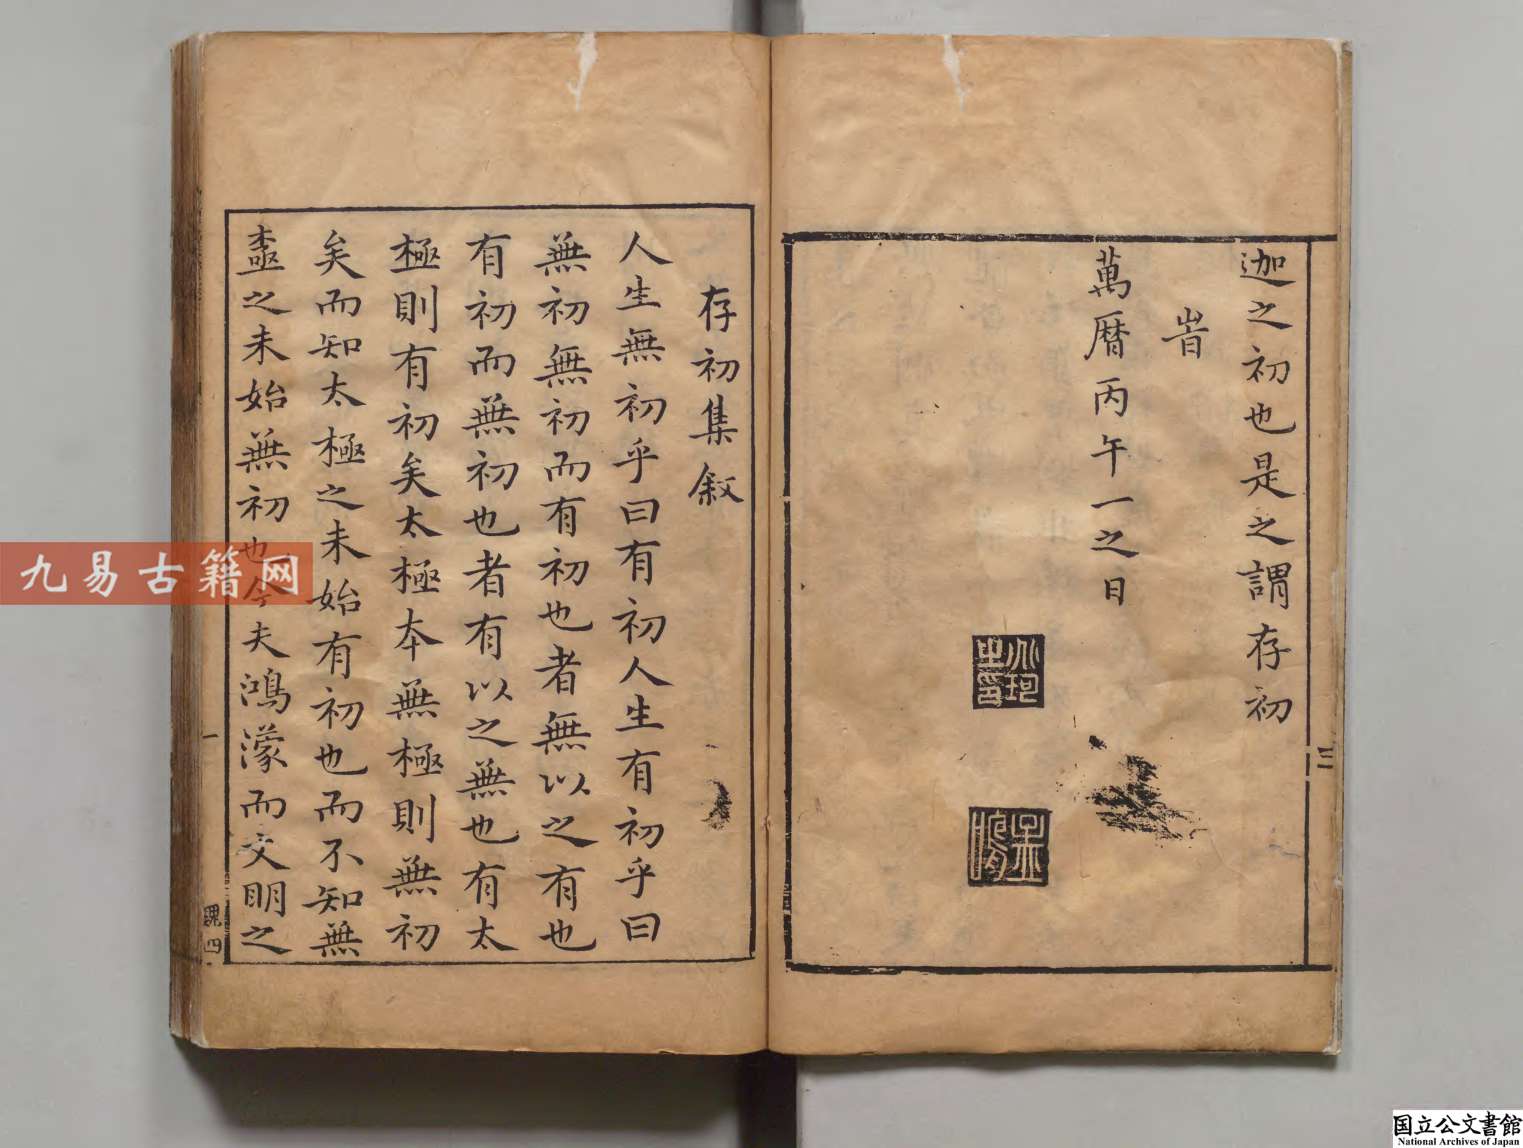 迦之初也是之謂存初
旹
萬暦丙午一之日
三
存初集叙
人生無初乎曰有初人生有初乎曰
無初無初而有初也者無以之有也
有初而無初也者有以之無也有太
極則有初矣太極本無極則無初
矣而知太極之未始有初也而不知無
之未始無初也今夫鴻濛而文明之
一
魏四
九易古籍网
国立公文書館
National Archives of Japan